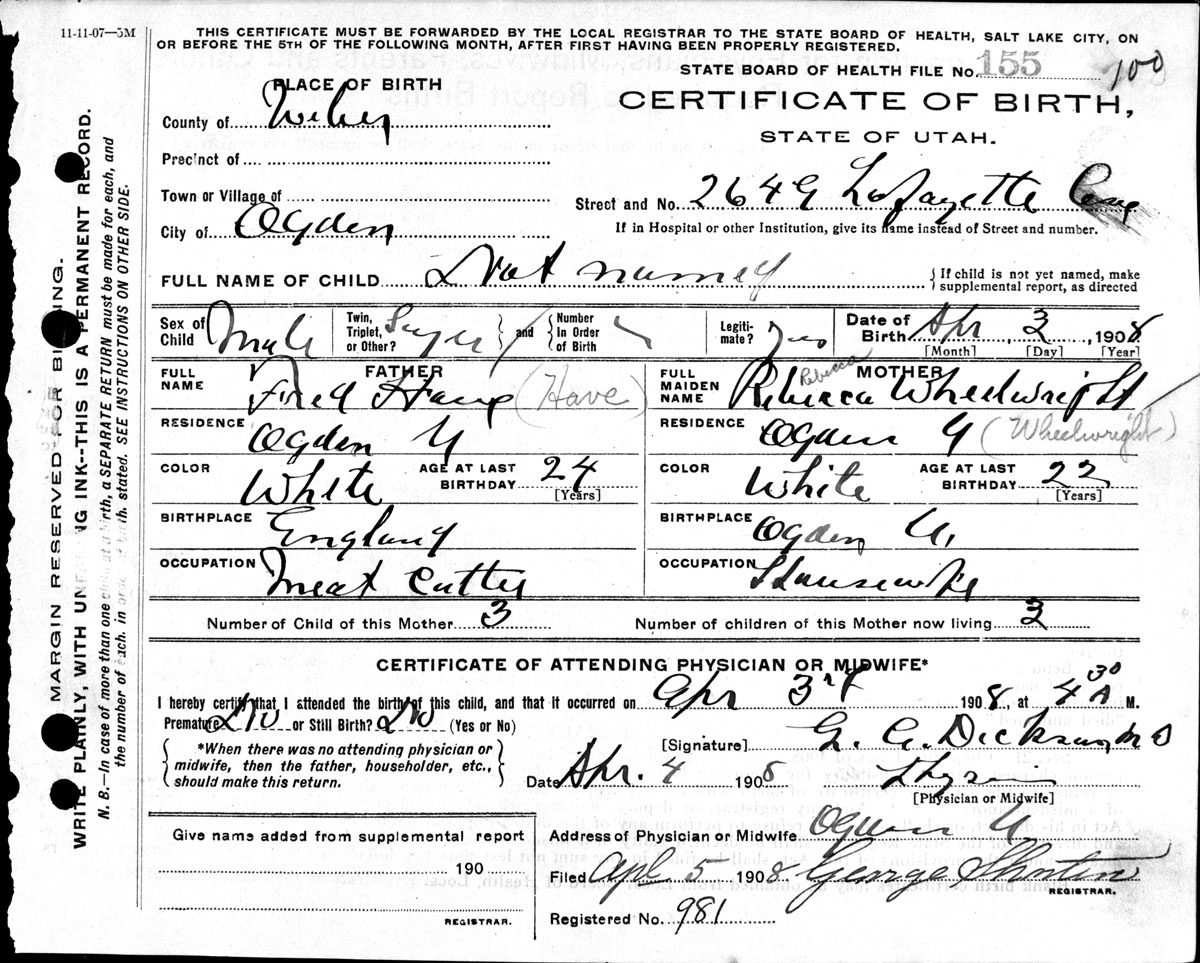 11-11-07—5M
THIS CERTIFICATE MUST BE FORWARDED BY THE LOCAL REGISTRAR TO THE STATE BOARD OF HEALTH, SALT LAKE CITY, ON
OR BEFORE THE 5TH OF THE FOLLOWING MONTH, AFTER FIRST HAVING BEEN PROPERLY REGISTERED.
STATE BOARD OF HEALTH FILE No. 155 100
PLACE OF BIRTH
CERTIFICATE OF BIRTH,
STATE OF UTAH.
County of Weber
Precinct of
Town or Village of
Street and No. 2649 Lafayette
City of Ogden
If in Hospital or other Institution, give its name instead of Street and number.
FULL NAME OF CHILD Not named
If child is not yet named, make
supplemental report, as directed
Sex of Child Male Twin, Triplet, or Other? and Number In Order of Birth Legiti- mate? Yes Date of Birth Apr 3, 1908
[Month] [Day] [Year]
FATHER
FULL NAME Fred (Have)
MOTHER
FULL MAIDEN NAME Rebecca Wheelwright
Rebecca
RESIDENCE Ogden U
RESIDENCE Ogden U (Wheelwright)
COLOR White AGE AT LAST BIRTHDAY 24 [Years]
COLOR White AGE AT LAST BIRTHDAY 22 [Years]
BIRTHPLACE England
BIRTHPLACE Ogden U.
OCCUPATION Meat Cutter
OCCUPATION Housewife
Number of Child of this Mother 3 Number of children of this Mother now living 3
CERTIFICATE OF ATTENDING PHYSICIAN OR MIDWIFE*
I hereby certify that I attended the birth of this child, and that it occurred on Apr 3rd 1908, at 4 30 A M.
Premature No or Still Birth? No (Yes or No)
*When there was no attending physician or
midwife, then the father, householder, etc.,
should make this return.
[Signature] Dickson, M D
Date Apr. 4 1908
[Physician or Midwife]
Give name added from supplemental report
190
REGISTRAR.
Address of Physician or Midwife Ogden U.
Filed Apl 5 1908 George
REGISTRAR.
Registered No. 981
MARGIN RESERVED FOR BINDING.
WRITE PLAINLY, WITH UNFADING INK--THIS IS A PERMANENT RECORD.
N. B.—In case of more than one child at a birth, a SEPARATE RETURN must be made for each, and
the number of each, in order of birth, stated. SEE INSTRUCTIONS ON OTHER SIDE.